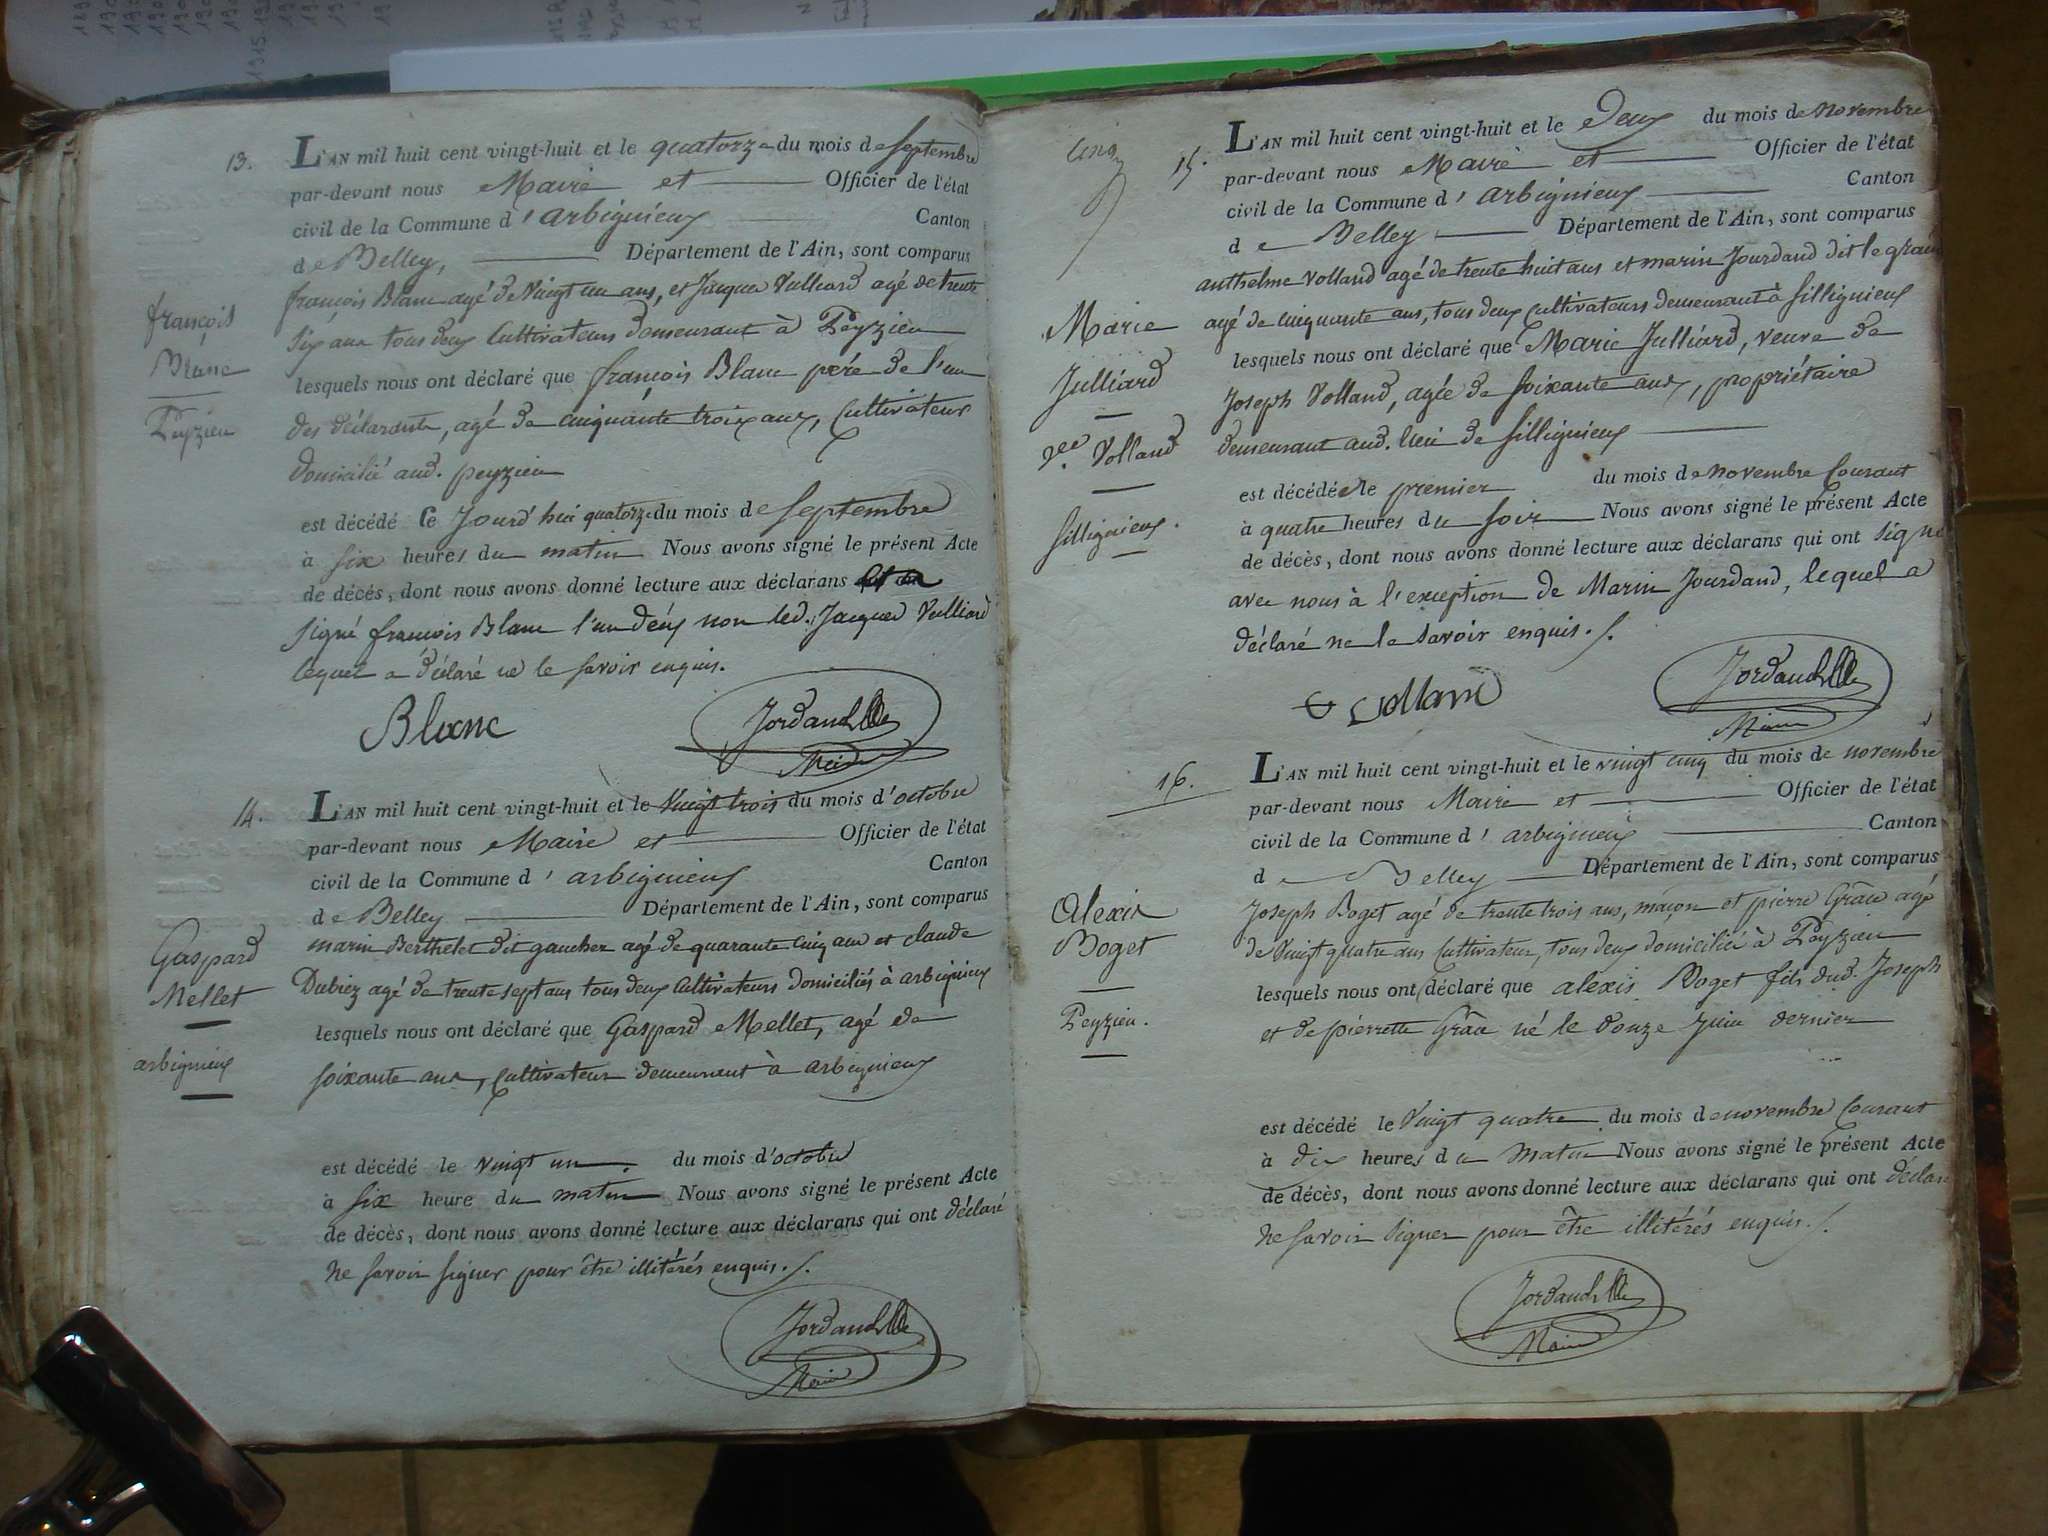 13.
L'AN mil huit cent vingt-huit et le quatorze du mois de septembre
par-devant nous Maire et Officier de l'état
civil de la Commune d'arbignieux Canton
de Belley, Département de l'Ain, sont comparus
françois Blanc agé de vingt un ans, et Jacques Vulliard agé de trente
six ans tous deux Cultivateurs demeurant à Peyzieu
lesquels nous ont déclaré que françois Blanc père de l'un
des déclarants, agé de cinquante trois ans, Cultivateur
domicilié aud. peyzieu
est décédé ce Jourd'hui quatorze du mois de septembre
à six heures du matin Nous avons signé le présent Acte
de décès, dont nous avons donné lecture aux déclarans
signé françois Blanc l'un d'eux non led. Jacques Vulliard
lequel a déclaré ne le savoir enquis.
françois
Blanc
Peyzieu
Blanc
Jordand
Maire
14.
L'AN mil huit cent vingt-huit et le vingt trois du mois d'octobre
par-devant nous Maire et Officier de l'état
civil de la Commune d'arbignieux Canton
de Belley Département de l'Ain, sont comparus
marin Berthelet dit gaucher agé de quarante cinq ans et claude
Dubiez agé de trente sept ans tous deux Cultivateurs domiciliés à arbignieux
lesquels nous ont déclaré que Gaspard Mellet, agé de
soixante ans, Cultivateur demeurant à arbignieux
est décédé le vingt un du mois d'octobre
à six heure du matin Nous avons signé le présent Acte
de décès, dont nous avons donné lecture aux déclarans qui ont déclaré
ne savoir signer pour être illitérés enquis.
Gaspard
Mellet
arbignieux
Jordand
Maire
Cinq
15.
L'AN mil huit cent vingt-huit et le Deux du mois de novembre
par-devant nous Maire et Officier de l'état
civil de la Commune d'arbignieux Canton
de Belley Département de l'Ain, sont comparus
anthelme Volland agé de trente huit ans et marin Jourdand dit le grand
agé de cinquante ans, tous deux Cultivateurs demeurant à Sillignieux
lesquels nous ont déclaré que Marie Julliard, veuve de
Joseph Volland, agée de soixante ans, propriétaire
demeurant aud. lieu de Sillignieux
est décédée le premier du mois de novembre Courant
à quatre heures du soir Nous avons signé le présent Acte
de décès, dont nous avons donné lecture aux déclarans qui ont signé
avec nous à l'exception de Marin Jourdand, lequel a
déclaré ne le savoir enquis.
Marie
Julliard
Vee. Volland
Sillignieux.
Volland
Jordand
Maire
16.
L'AN mil huit cent vingt-huit et le vingt cinq du mois de novembre
par-devant nous Maire et Officier de l'état
civil de la Commune d'arbignieux Canton
de Belley Département de l'Ain, sont comparus
Joseph Boget agé de trente trois ans, maçon et pierre Grâce agé
de vingt quatre ans Cultivateur, tous deux domiciliés à Peyzieu
lesquels nous ont déclaré que alexis Boget fils dud. Joseph
et de pierrette Grâce né le douze Juin dernier
est décédé le vingt quatre du mois de novembre Courant
à dix heures du matin Nous avons signé le présent Acte
de décès, dont nous avons donné lecture aux déclarans qui ont déclaré
ne savoir signer pour être illitérés enquis.
Alexis
Boget
Peyzieu.
Jordand
Maire